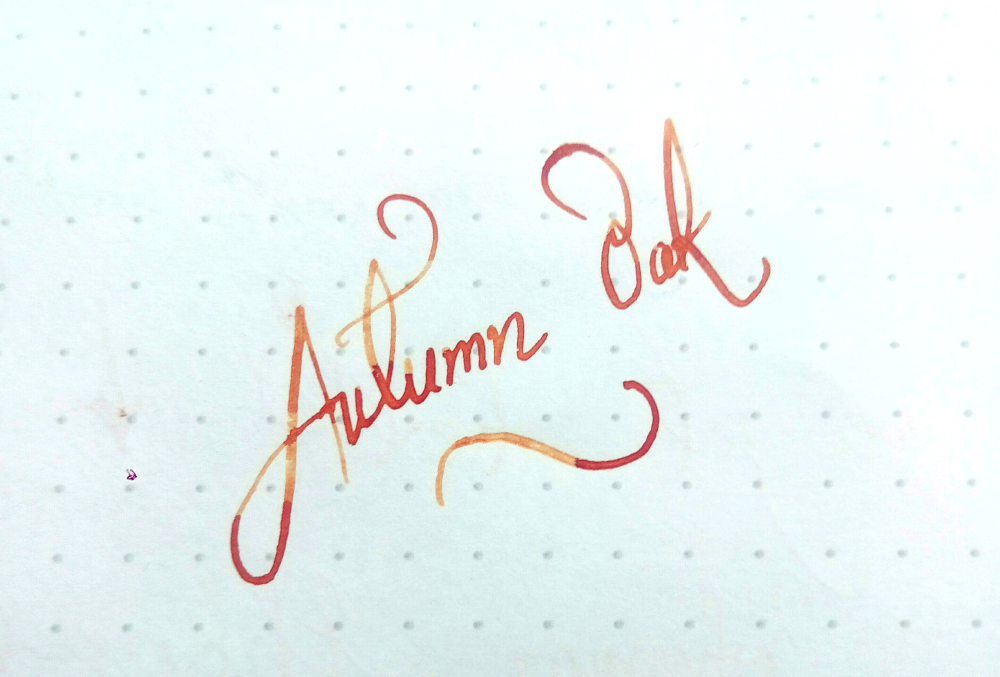 Autumn Oak